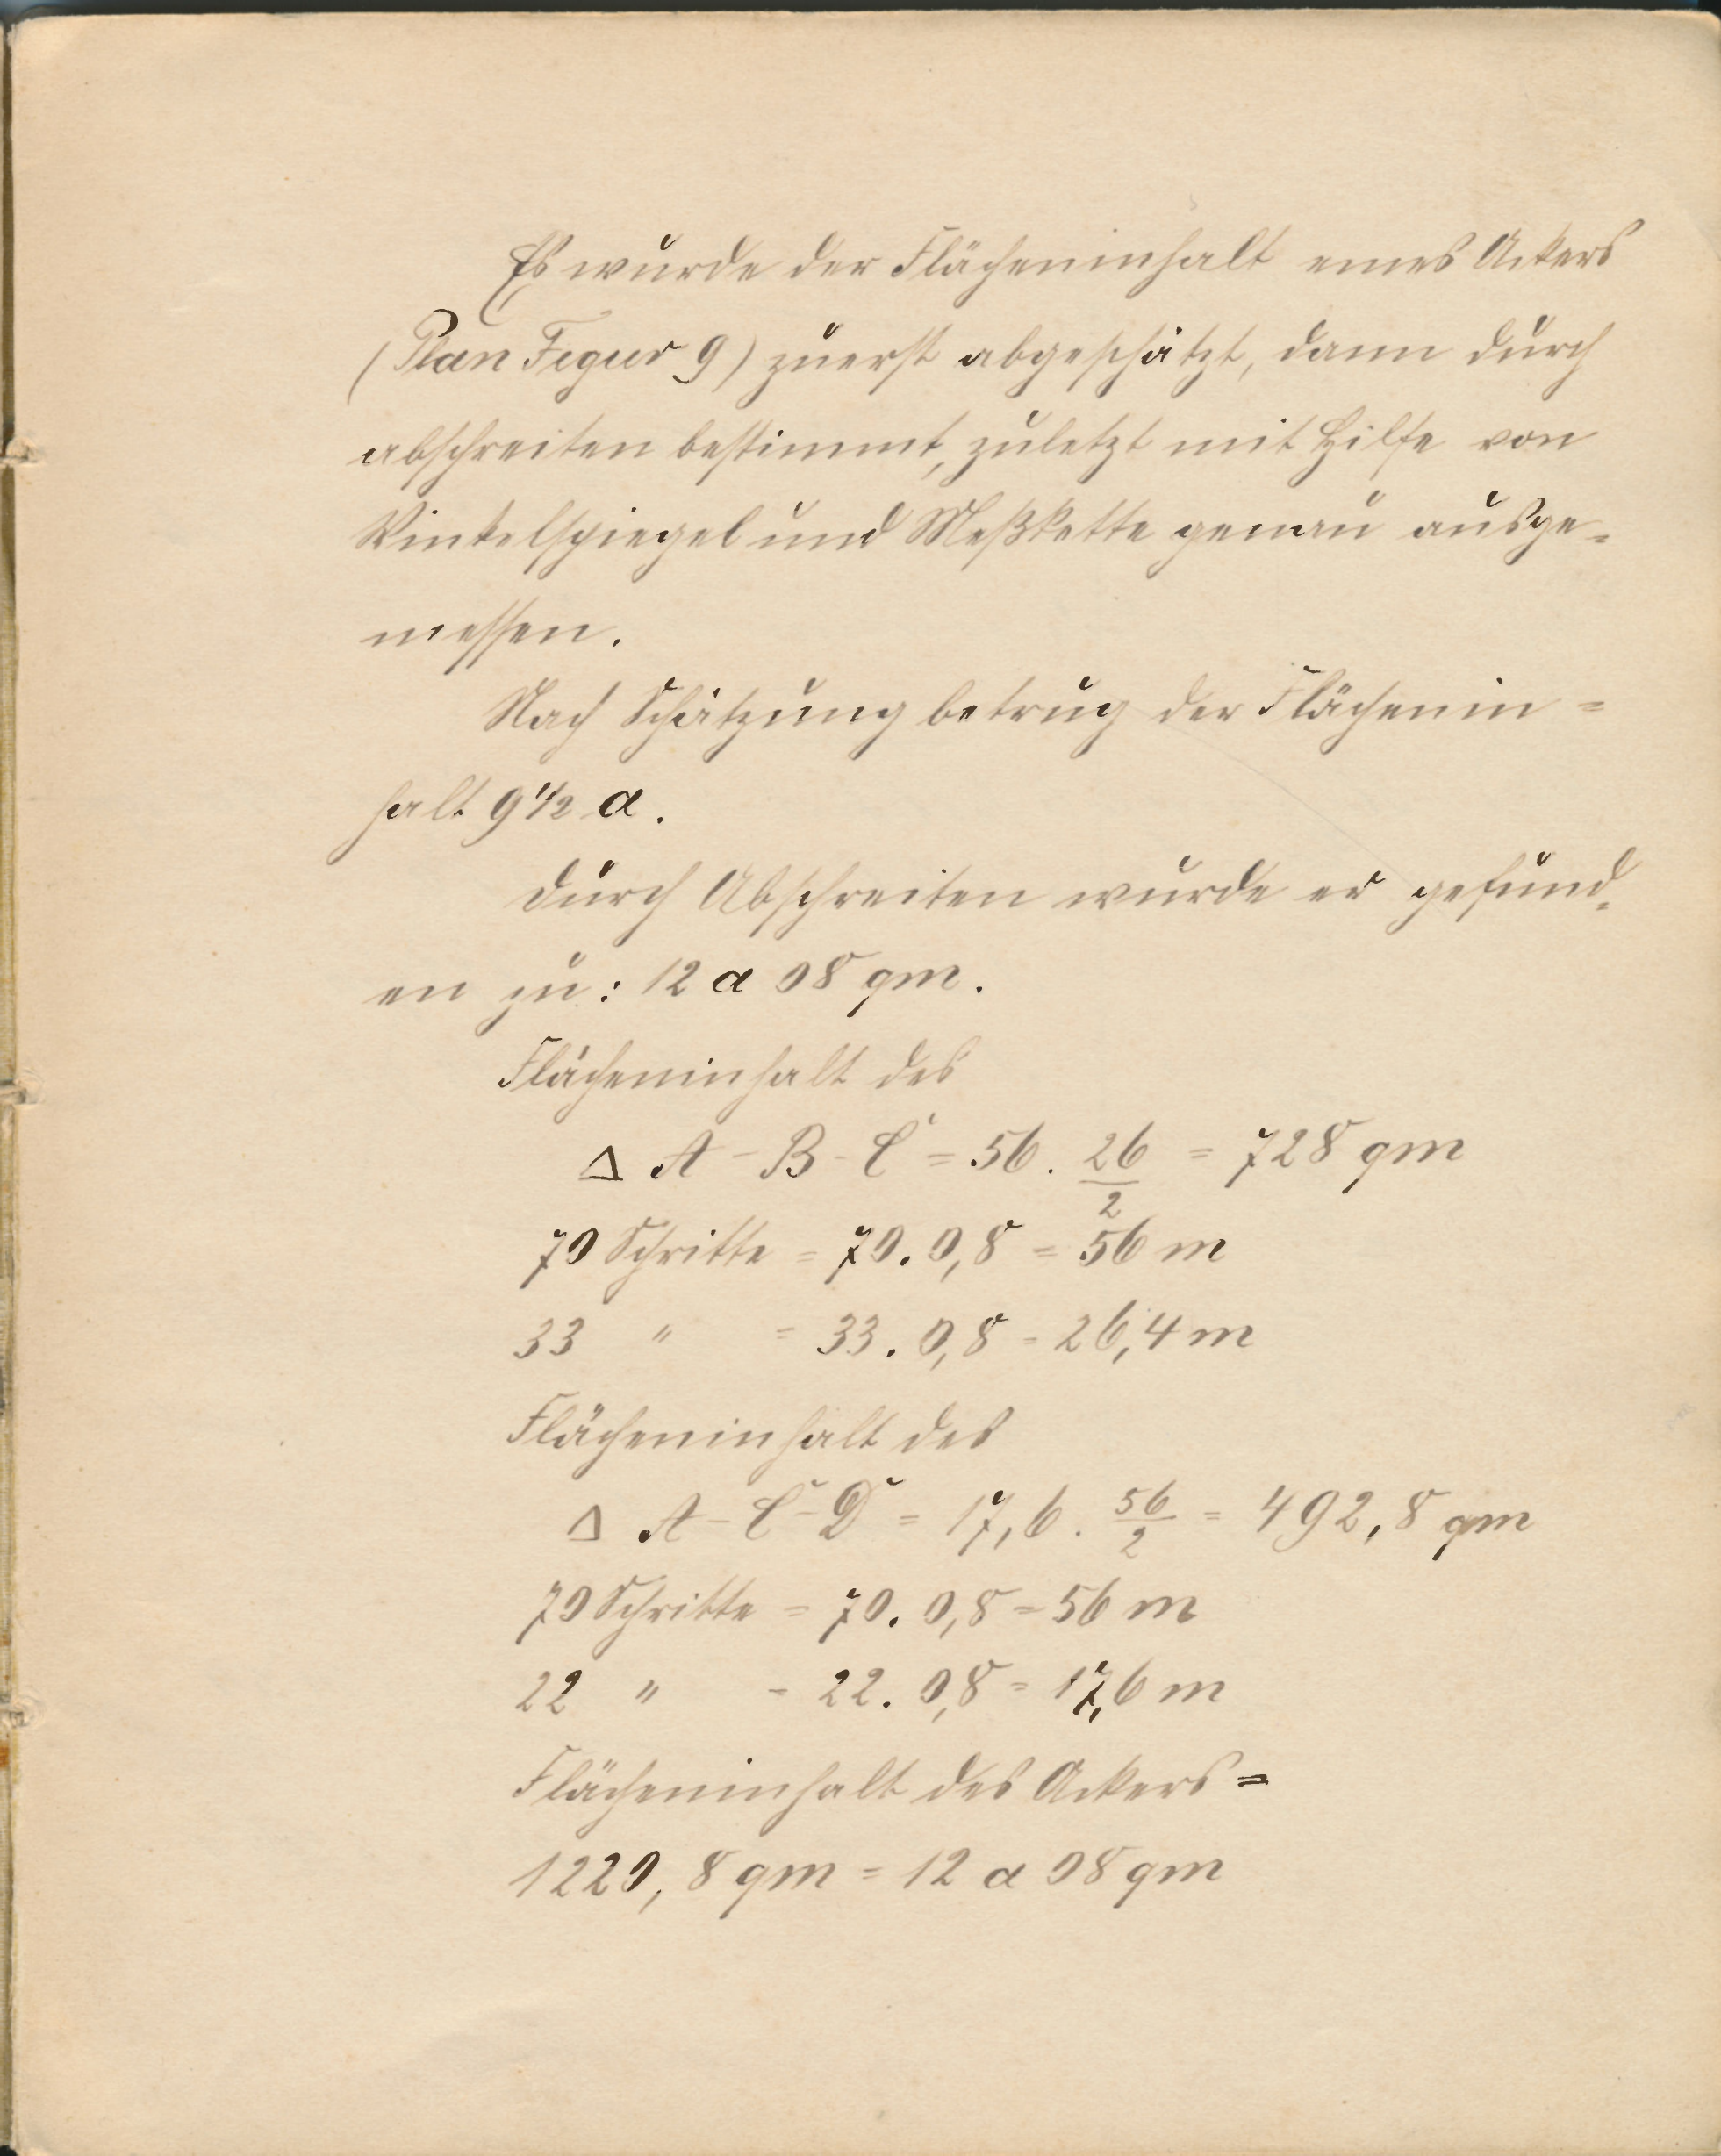 Es wurde der Flächeninhalt eines Ackers
(Plan Figur 9) zuerst abgeschätzt, dann durch
abschreiten bestimmt, zuletzt mit Hilfe von
Winkelspiegel und Meßkette genau ausge-
messen.
Nach Schätzung betrug der Flächenin-
halt 9 1/2 a.
Durch Abschreiten wurde er gefund-
en zu: 12 a 08 qm.
Flächeninhalt des
Δ A-B-C = 56. 26/2 = 728 qm
70 Schritte = 70. 0,8 = 56 m
33 " = 33. 0,8 = 26,4 m
Flächeninhalt des
Δ A-C-D = 17,6. 56/2 = 492,8 qm
70 Schritte = 70. 0,8 = 56 m
22 " = 22. 0,8 = 17,6 m
Flächeninhalt des Ackers =
1220,8 qm = 12 a 08 qm